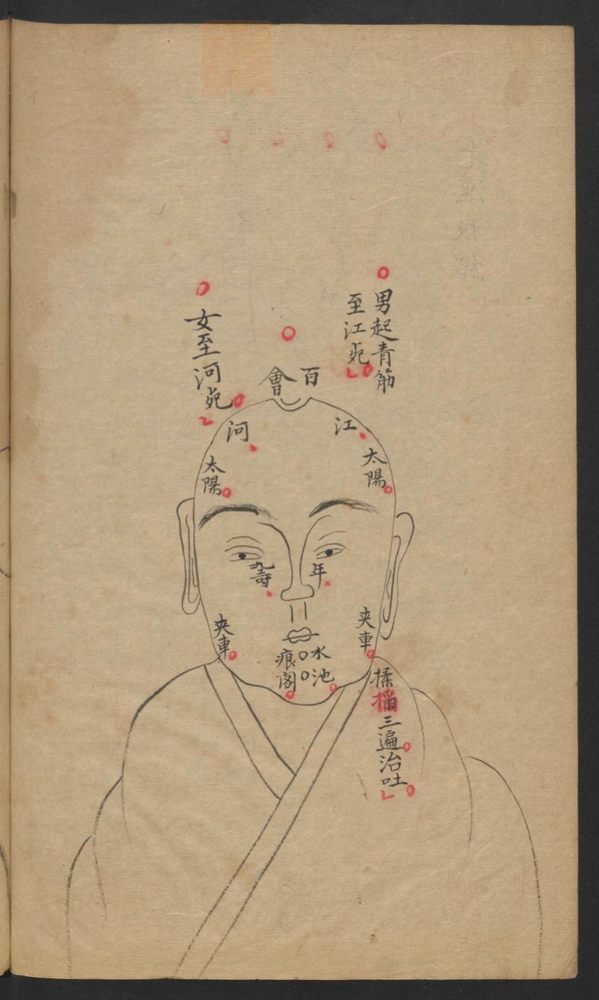 男起青筋
至江苑
百會
女至河苑
江
河
太陽
太陽
年
壽
夾車
夾車
水池
三遍治吐